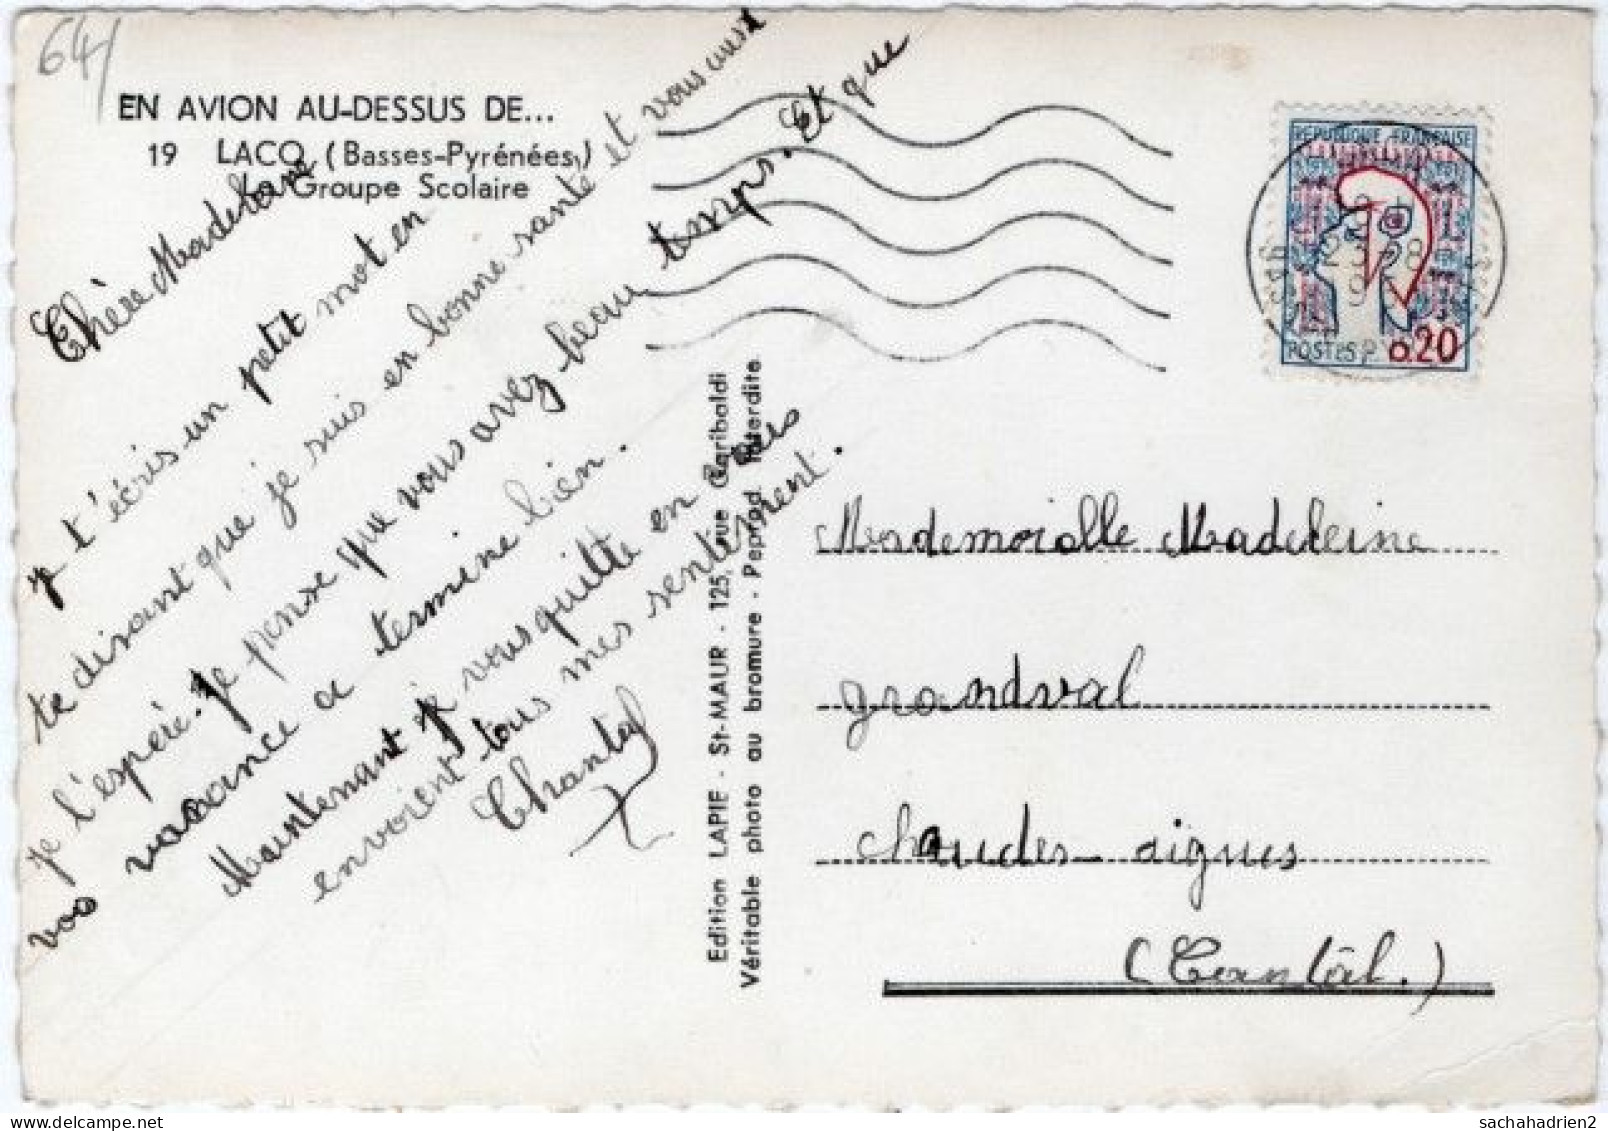 64/
EN AVION AU-DESSUS DE...
19 LACQ (Basses-Pyrénées)
Le Groupe Scolaire
Chère Madeleine
je t'écris un petit mot en
te disant que je suis en bonne santé et vous aussi
je l'espère. Je pense que vous avez beau temps. Et que
vos vacance a termine bien.
Maintenant je vous quitte en vous
envoient tous mes sentiment.
Chantal
Edition LAPIE - St-MAUR - 125, rue Garibaldi
Véritable photo au bromure - Reprod Interdite
REPUBLIQUE FRANCAISE
POSTES
0.20
Mademoiselle Madeleine
grandval
chaudes-aigues
(Cantal.)
www.delcampe.net
sachahadrien2